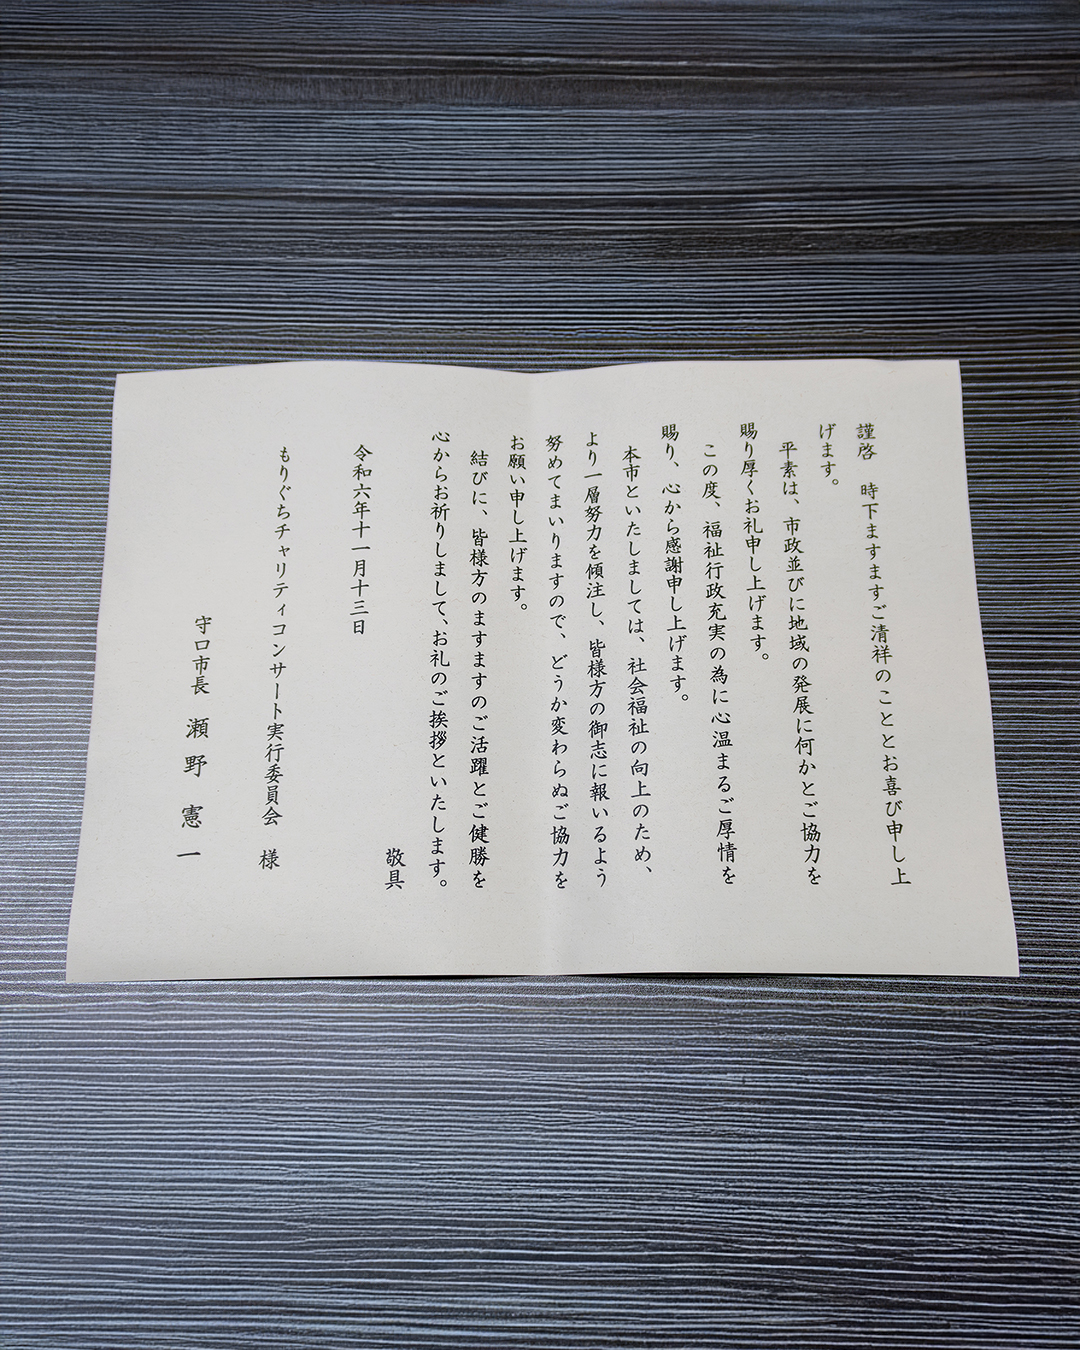 謹啓　時下ますますご清祥のこととお喜び申し上
げます。
平素は、市政並びに地域の発展に何かとご協力を
賜り厚くお礼申し上げます。
この度、福祉行政充実の為に心温まるご厚情を
賜り、心から感謝申し上げます。
本市といたしましては、社会福祉の向上のため、
より一層努力を傾注し、皆様方の御志に報いるよう
努めてまいりますので、どうか変わらぬご協力を
お願い申し上げます。
結びに、皆様方のますますのご活躍とご健勝を
心からお祈りしまして、お礼のご挨拶といたします。
敬具
令和六年十一月十三日
もりぐちチャリティコンサート実行委員会　様
守口市長　瀬野憲一